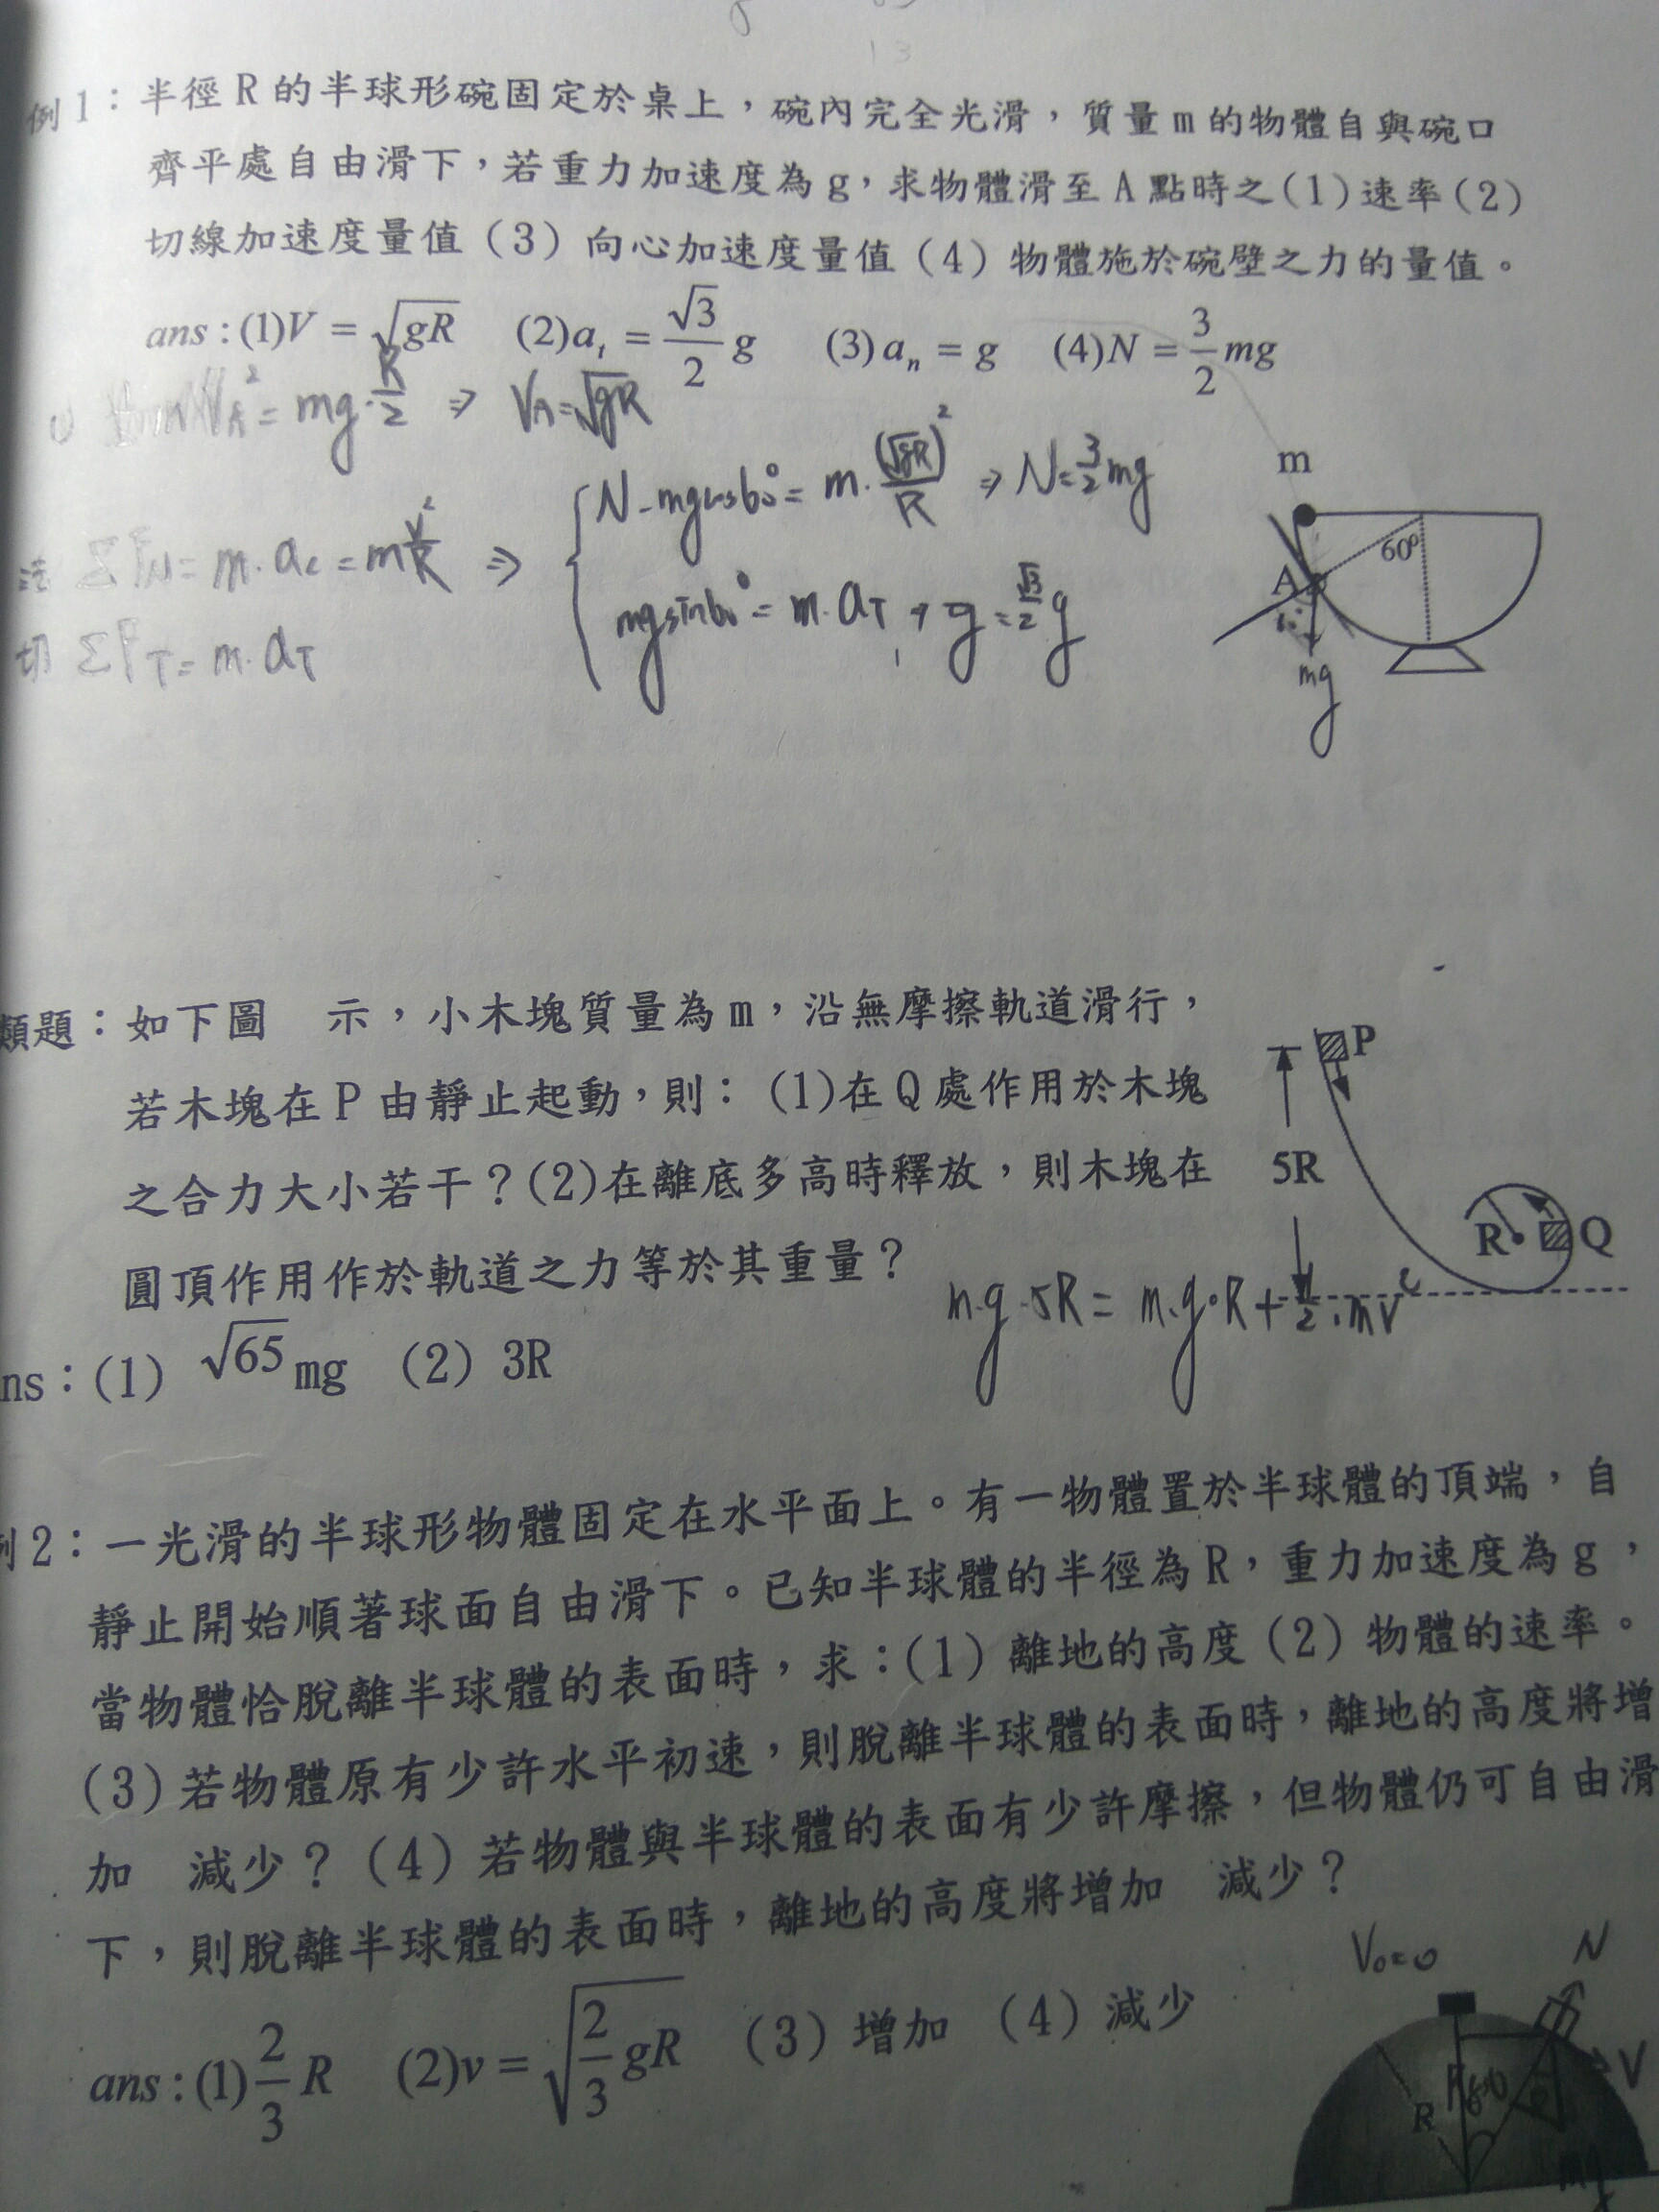 例1：半徑R的半球形碗固定於桌上，碗內完全光滑，質量m的物體自與碗口
齊平處自由滑下，若重力加速度為g，求物體滑至A點時之(1)速率(2)
切線加速度量值(3)向心加速度量值(4)物體施於碗壁之力的量值。
ans:(1)V=√gR (2)a_t=√3/2 g (3)a_n=g (4)N=3/2 mg
V_A²=mg·R/2 ⇒ V_A=√gR
N-mgcos60°=m·(√gR)²/R ⇒ N=3/2 mg
法 ΣF_N=m·a_c=m v²/R ⇒
mgsin60°=m·a_T, g=√3/2 g
切 ΣF_T=m·a_T
m
60°
A
mg
類題：如下圖 示，小木塊質量為m，沿無摩擦軌道滑行，
若木塊在P由靜止起動，則：(1)在Q處作用於木塊
之合力大小若干？(2)在離底多高時釋放，則木塊在
圓頂作用作於軌道之力等於其重量？
m·g·5R=m·g·R+1/2·mv²
ns：(1) √65 mg (2) 3R
P
5R
R
Q
例2：一光滑的半球形物體固定在水平面上。有一物體置於半球體的頂端，自
靜止開始順著球面自由滑下。已知半球體的半徑為R，重力加速度為g，
當物體恰脫離半球體的表面時，求：(1)離地的高度(2)物體的速率。
(3)若物體原有少許水平初速，則脫離半球體的表面時，離地的高度將增
加 減少？(4)若物體與半球體的表面有少許摩擦，但物體仍可自由滑
下，則脫離半球體的表面時，離地的高度將增加 減少？
ans:(1)2/3 R (2)v=√(2/3 gR) (3)增加 (4)減少
V₀=0
N
V
R
mg